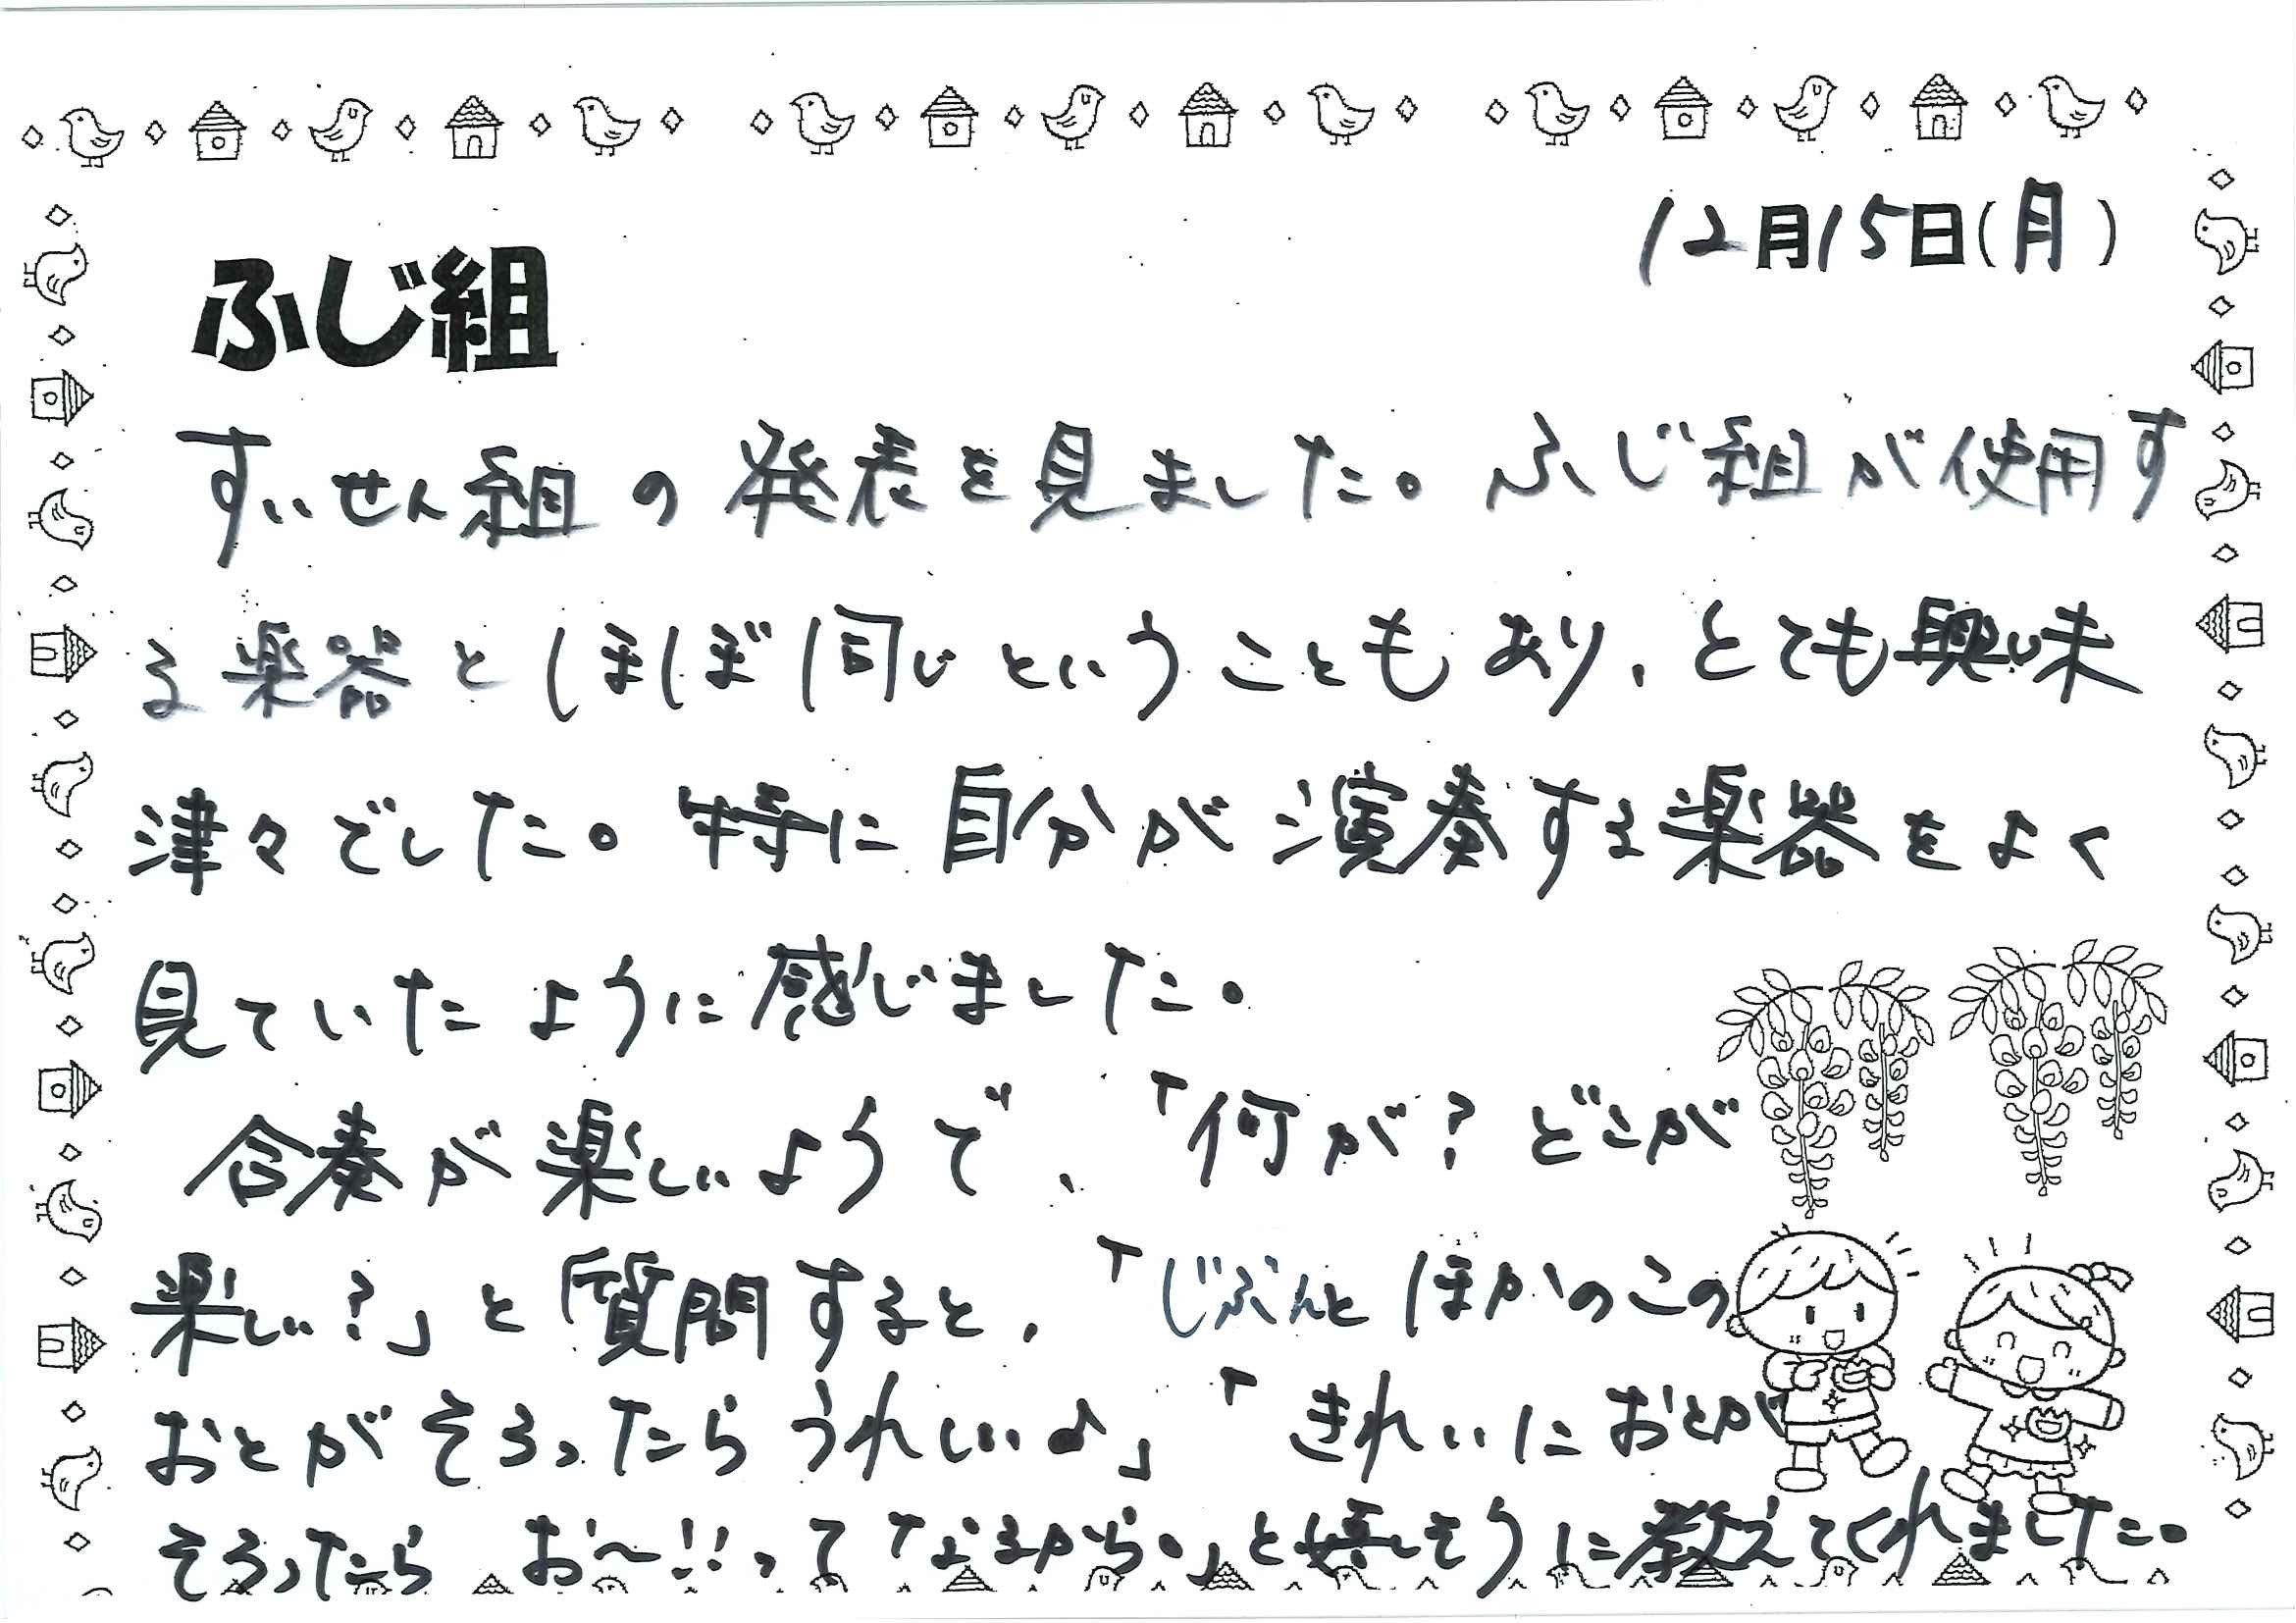 12月15日(月)
ふじ組
すいせん組の発表を見ました。ふじ組が使用す
る楽器とほぼ同じということもあり、とても興味
津々でした。特に自分が演奏する楽器をよく
見ていたように感じました。
合奏が楽しいようで、「何が?どこが
楽しい?」と質問すると、「じぶんとほかのこの
おとがそろったらうれしい♪」「きれいにおとが
そろったらお〜!!ってなるから。」と嬉しそうに教えてくれました。